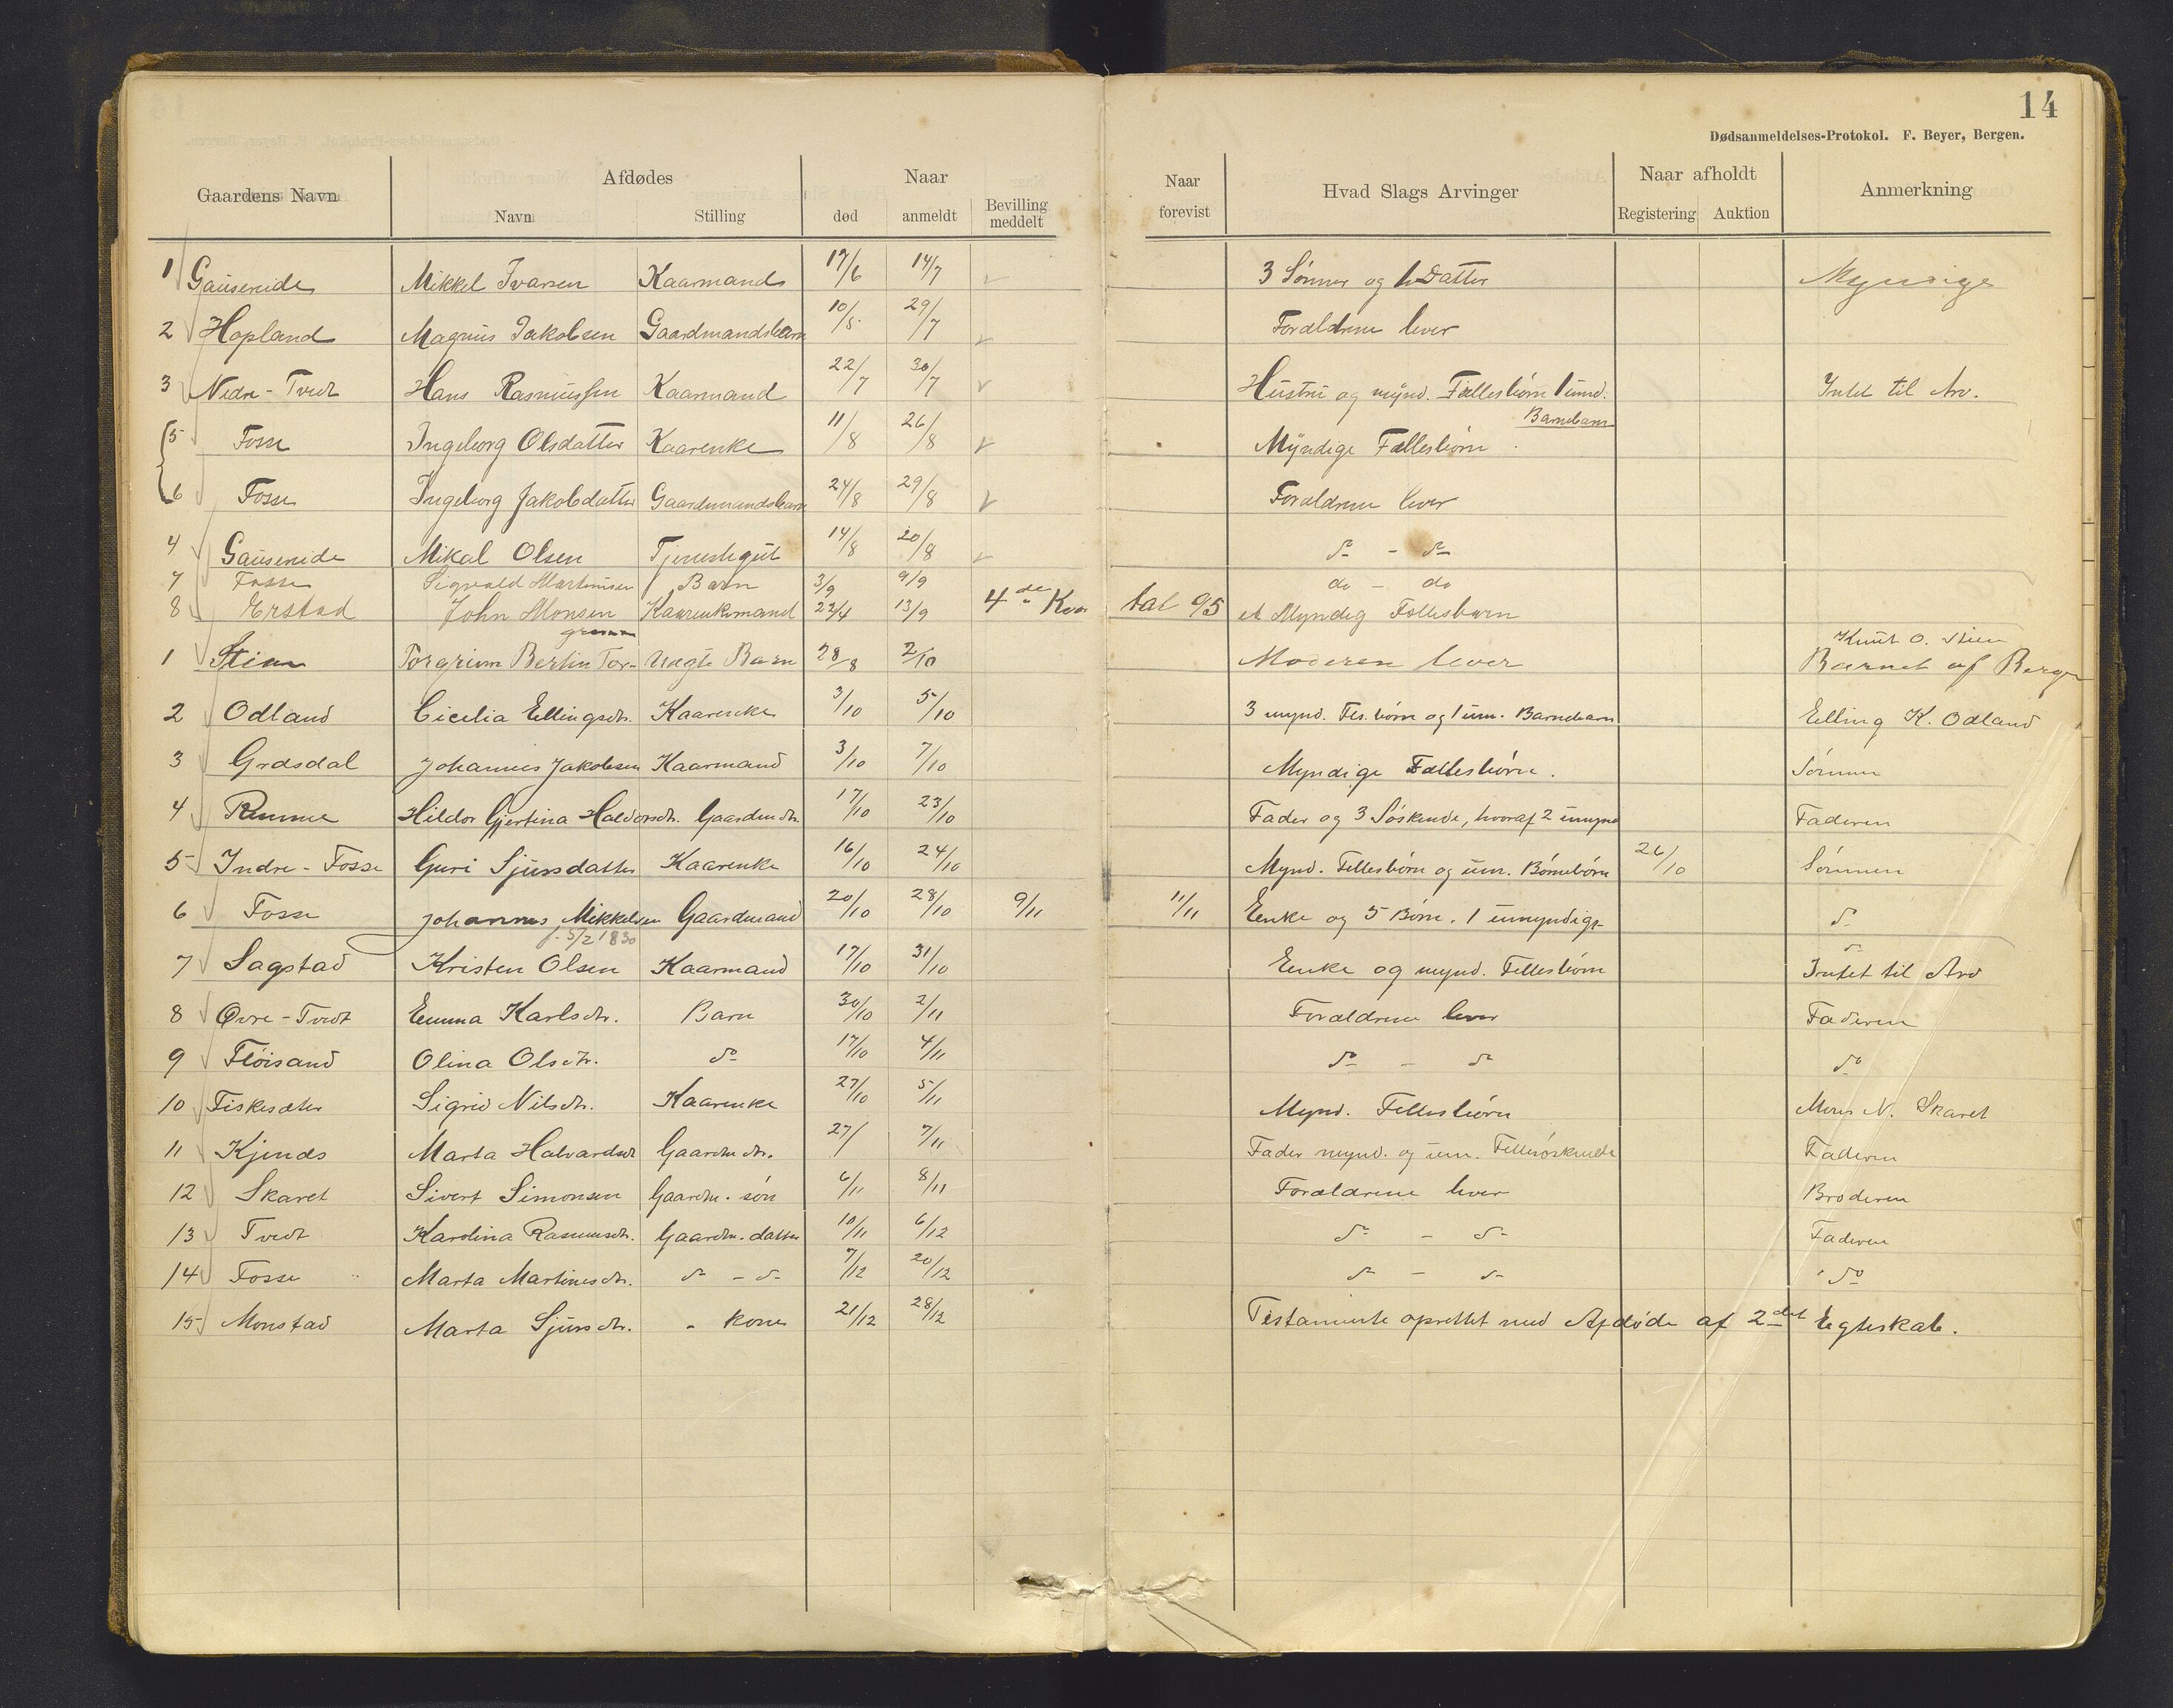 14
Dødsanmeldelses-Protokol. F. Beyer, Bergen.
Gaardens Navn Afdødes Naar Naar forevist Hvad Slags Arvinger Naar afholdt Anmerkning
Navn Stilling død anmeldt Bevilling meddelt Registering Auktion
1 Gausereide Mikkel Ivarsen Kaarmand 17/6 14/7 3 Sønner og 1 Datter Myndige
2 Hopland Magnus Jakobsen Gaardmandsbarn 10/5 29/7 Forældrene lever
3 Nedre-Tvedt Hans Rasmussen Kaarmand 22/7 30/7 Hustru og mynd. Fællesbørn 1 umd. Barnebarn Intet til Arv.
5 Fosse Ingeborg Olsdatter Kaarenke 11/8 26/8 Myndige Fællesbørn
6 Fosse Ingeborg Jakobsdatter Gaardmandsbarn 24/8 29/8 Forældrene lever
4 Gausereide Mikal Olsen Tjenestegut 14/8 20/8 do - do
7 Fosse Sigvald Martinusen Barn 3/9 9/9 do - do
8 Erstad John Monsen Kaarenkemand 22/4 13/9 4de Kvartal 95 et Myndig Fællesbarn
1 Stien Torgrim Bertin Torgrimsen Uægte Barn 28/8 2/10 Moderen lever Knut O. Stien Barnet af Bergen
2 Odland Cicilia Ellingsdtr. Kaarenke 3/10 5/10 3 mynd. Fls. børn og 1 um. Barnebarn Elling K. Odland
3 Grdsdal Johannes Jakobsen Kaarmand 3/10 7/10 Myndige Fællesbørn. Sønnen
4 Ramme Hildor Gjertina Haldorsdtr. Gaardmdtr. 17/10 23/10 Fader og 3 Søskende, hvoraf 2 umynd Faderen
5 Indre-Fosse Guri Sjursdatter Kaarenke 16/10 24/10 Mynd. Fellesbørn og um. Børnebørn 26/10 Sønnen
6 Fosse Johannes Mikkelsen Gaardmand 20/10 28/10 9/11 11/11 Enke og 5 Børn. 1 umyndige do
f. 5/2 1830
7 Sagstad Kristen Olsen Kaarmand 17/10 31/10 Enke og mynd. Fellesbørn do Intet til Arv
8 Øvre-Tvedt Emma Karlsdtr. Barn 30/10 2/11 Forældrene lever Faderen
9 Fløisand Olina Olsdtr. do 17/10 4/11 do - do do
10 Fiskesæter Sigrid Nilsdtr. Kaarenke 27/10 5/11 Mynd. Fellesbørn Mons N. Skaret
11 Kjenes Marta Halvardsdtr Gaardmdtr. 27/ 7/11 Fader mynd. og um. Fellesøskende Faderen
12 Skaret Sivert Simonsen Gaardm. søn 6/11 8/11 Forældrene lever Broderen
13 Tvedt Karolina Rasmusdtr. Gaardm. datter 10/11 6/12 do - do Faderen
14 Fosse Marta Martinusdtr. do - do 7/12 20/12 do - do do
15 Monstad Marta Sjursdtr. " Kone 21/12 28/12 Testamente oprettet med Afdøde af 2det Egteskab.